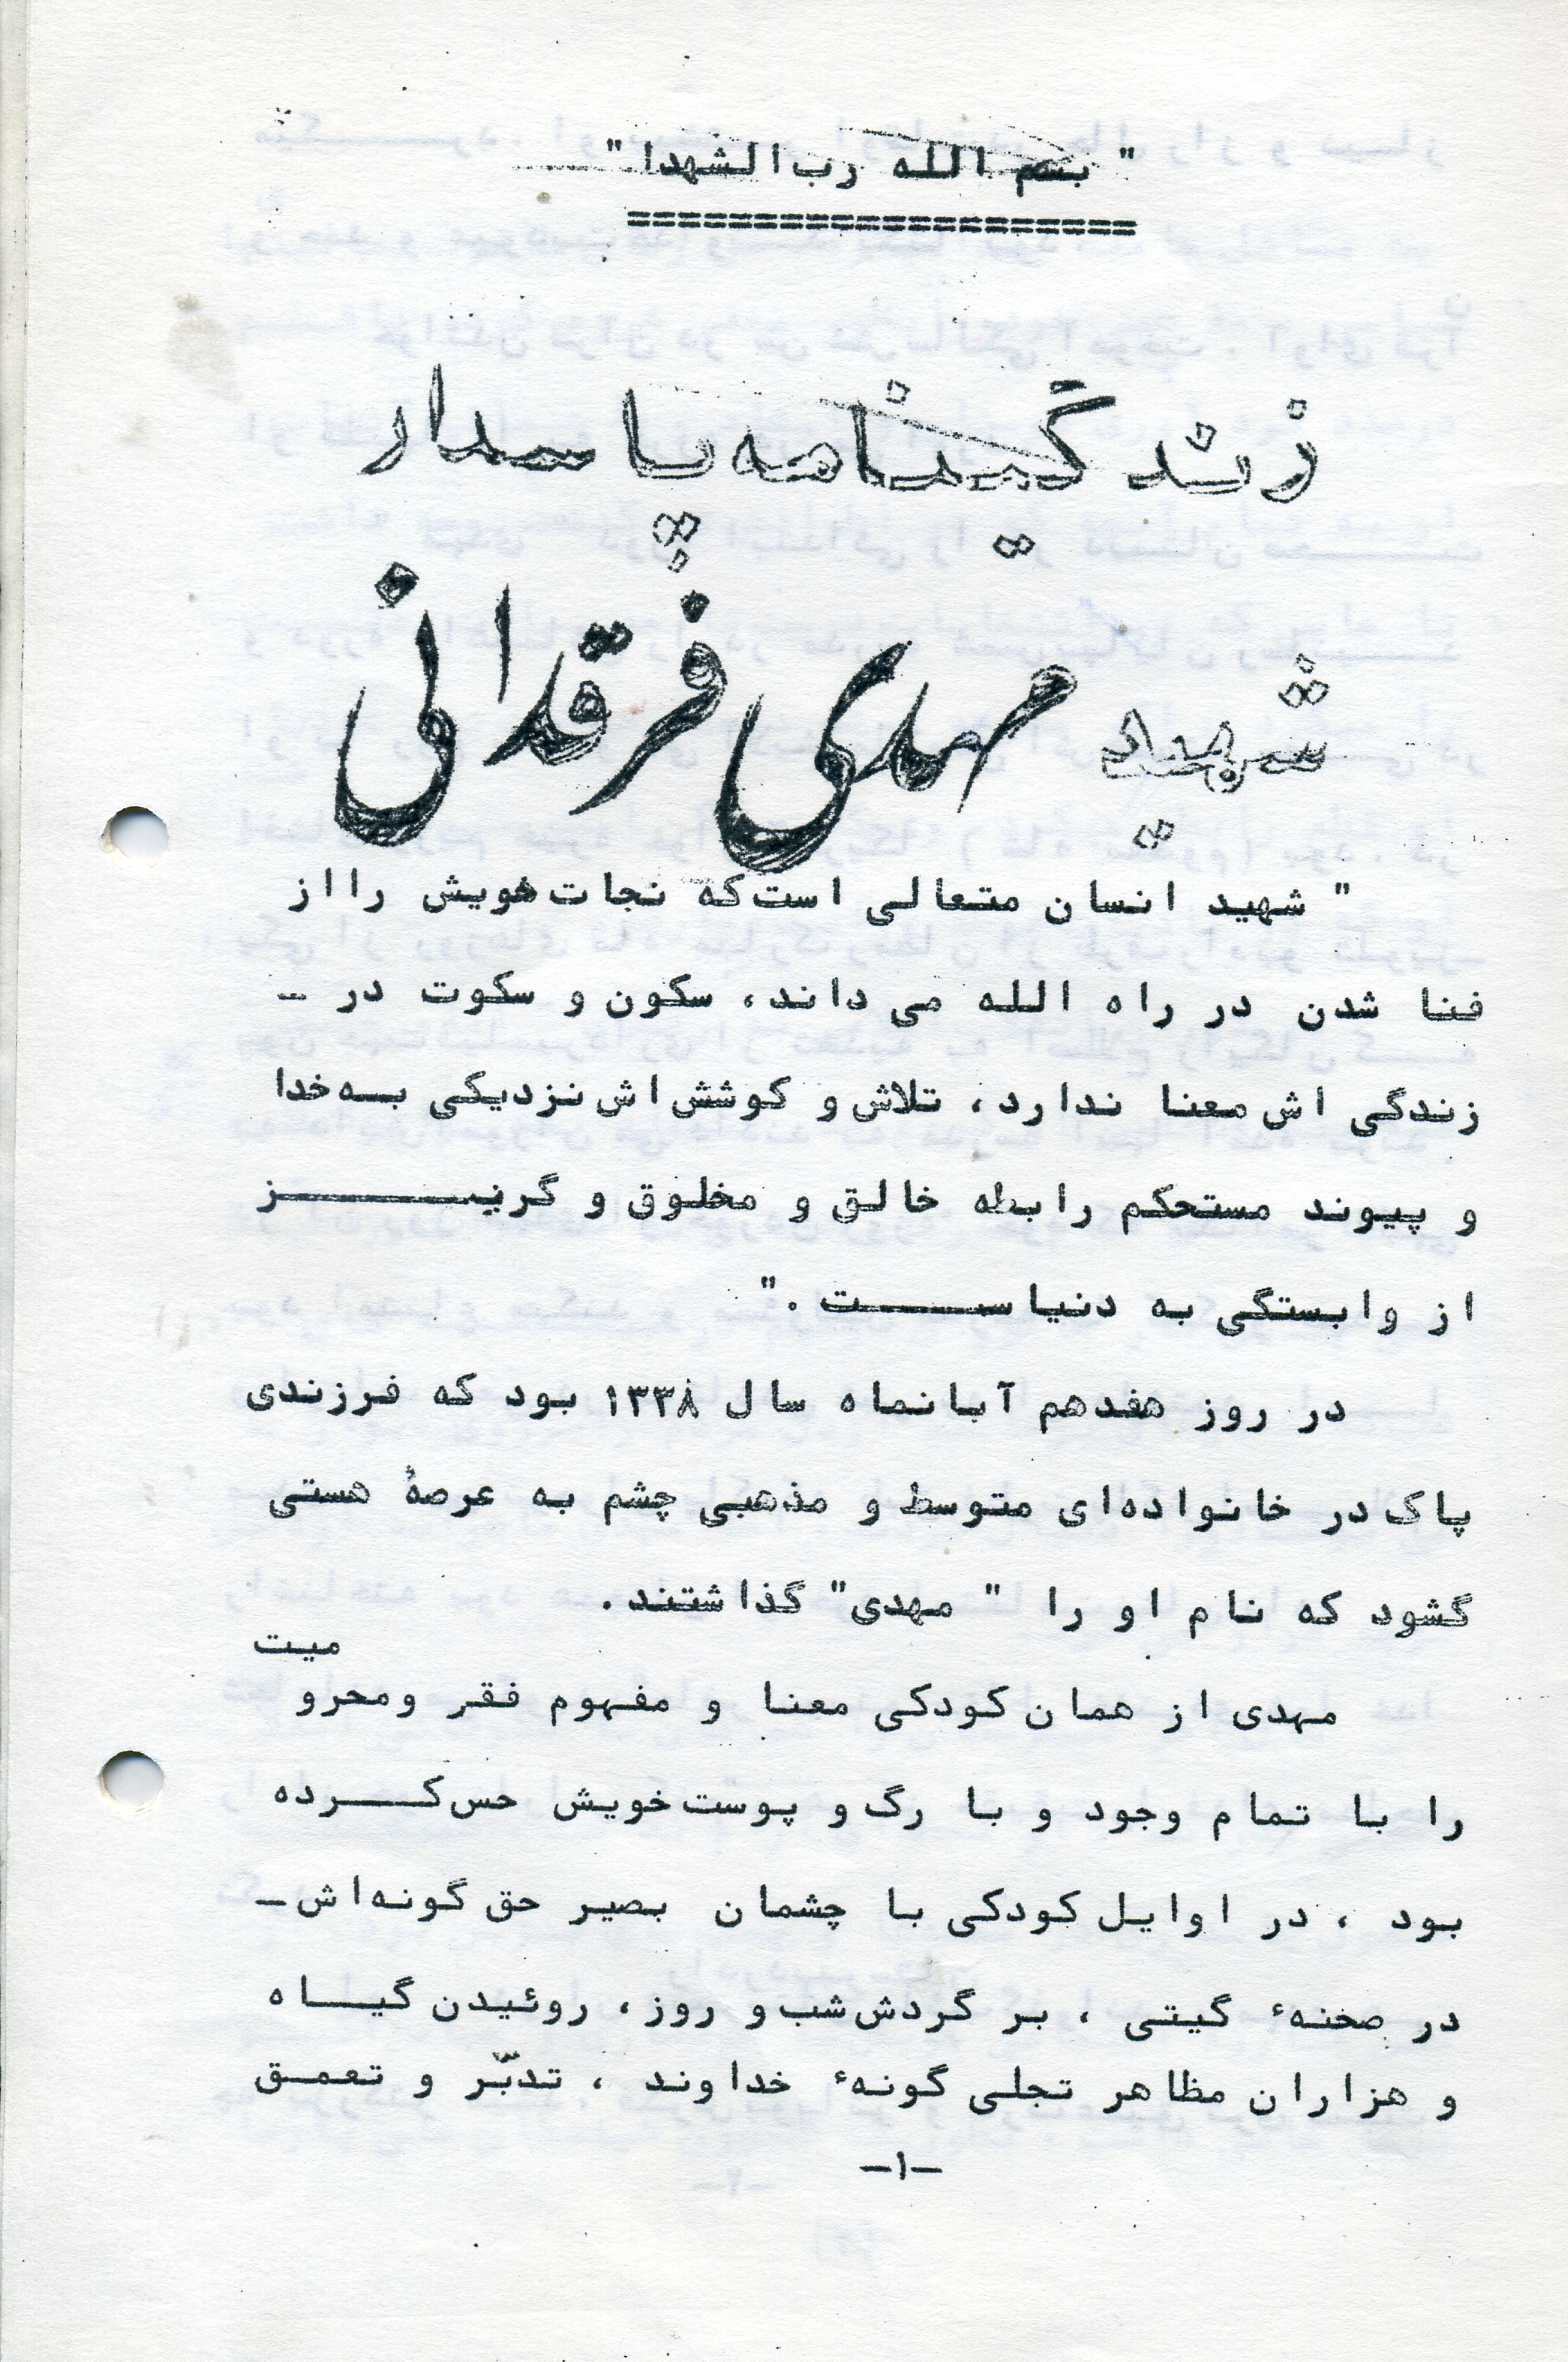 " بسم الله رب‌الشهدا "
زندگینامه پاسدار
شهید مهدی فرقدانی
" شهید انسان متعالی است‌که نجات‌خویش را از
فنا شدن در راه الله می داند، سکون و سکوت در –
زندگی اش‌معنا ندارد، تلاش‌و کوشش‌اش‌نزدیکی بـه‌خدا
و پیوند مستحکم رابطه خالق و مخلوق و گریـــــــــز
از وابستگی به دنیاســـــــت ."
در روز هفدهم آبانماه سال ۱۳۳۸ بود که فرزندی
پاک‌در خانواده‌ای متوسط و مذهبی چشم به عرصهٔ هستی
گشود که نام او را " مهدی" گذاشتند.
مهدی از همان‌کودکی معنا و مفهوم فقر ومحرو میت
را با تمام وجود و با رگ‌و پوست‌خویش حس‌کـــرده
بود ، در اوایل‌کودکی با چشمان بصیر حق‌گونه‌اش–
در صحنهٔ گیتی ، بر گردش‌شب‌و روز، روئیدن‌گیـــاه
و هزاران مظاهر تجلی‌گونهٔ خداوند ، تدبّر و تعمـق
–۱–